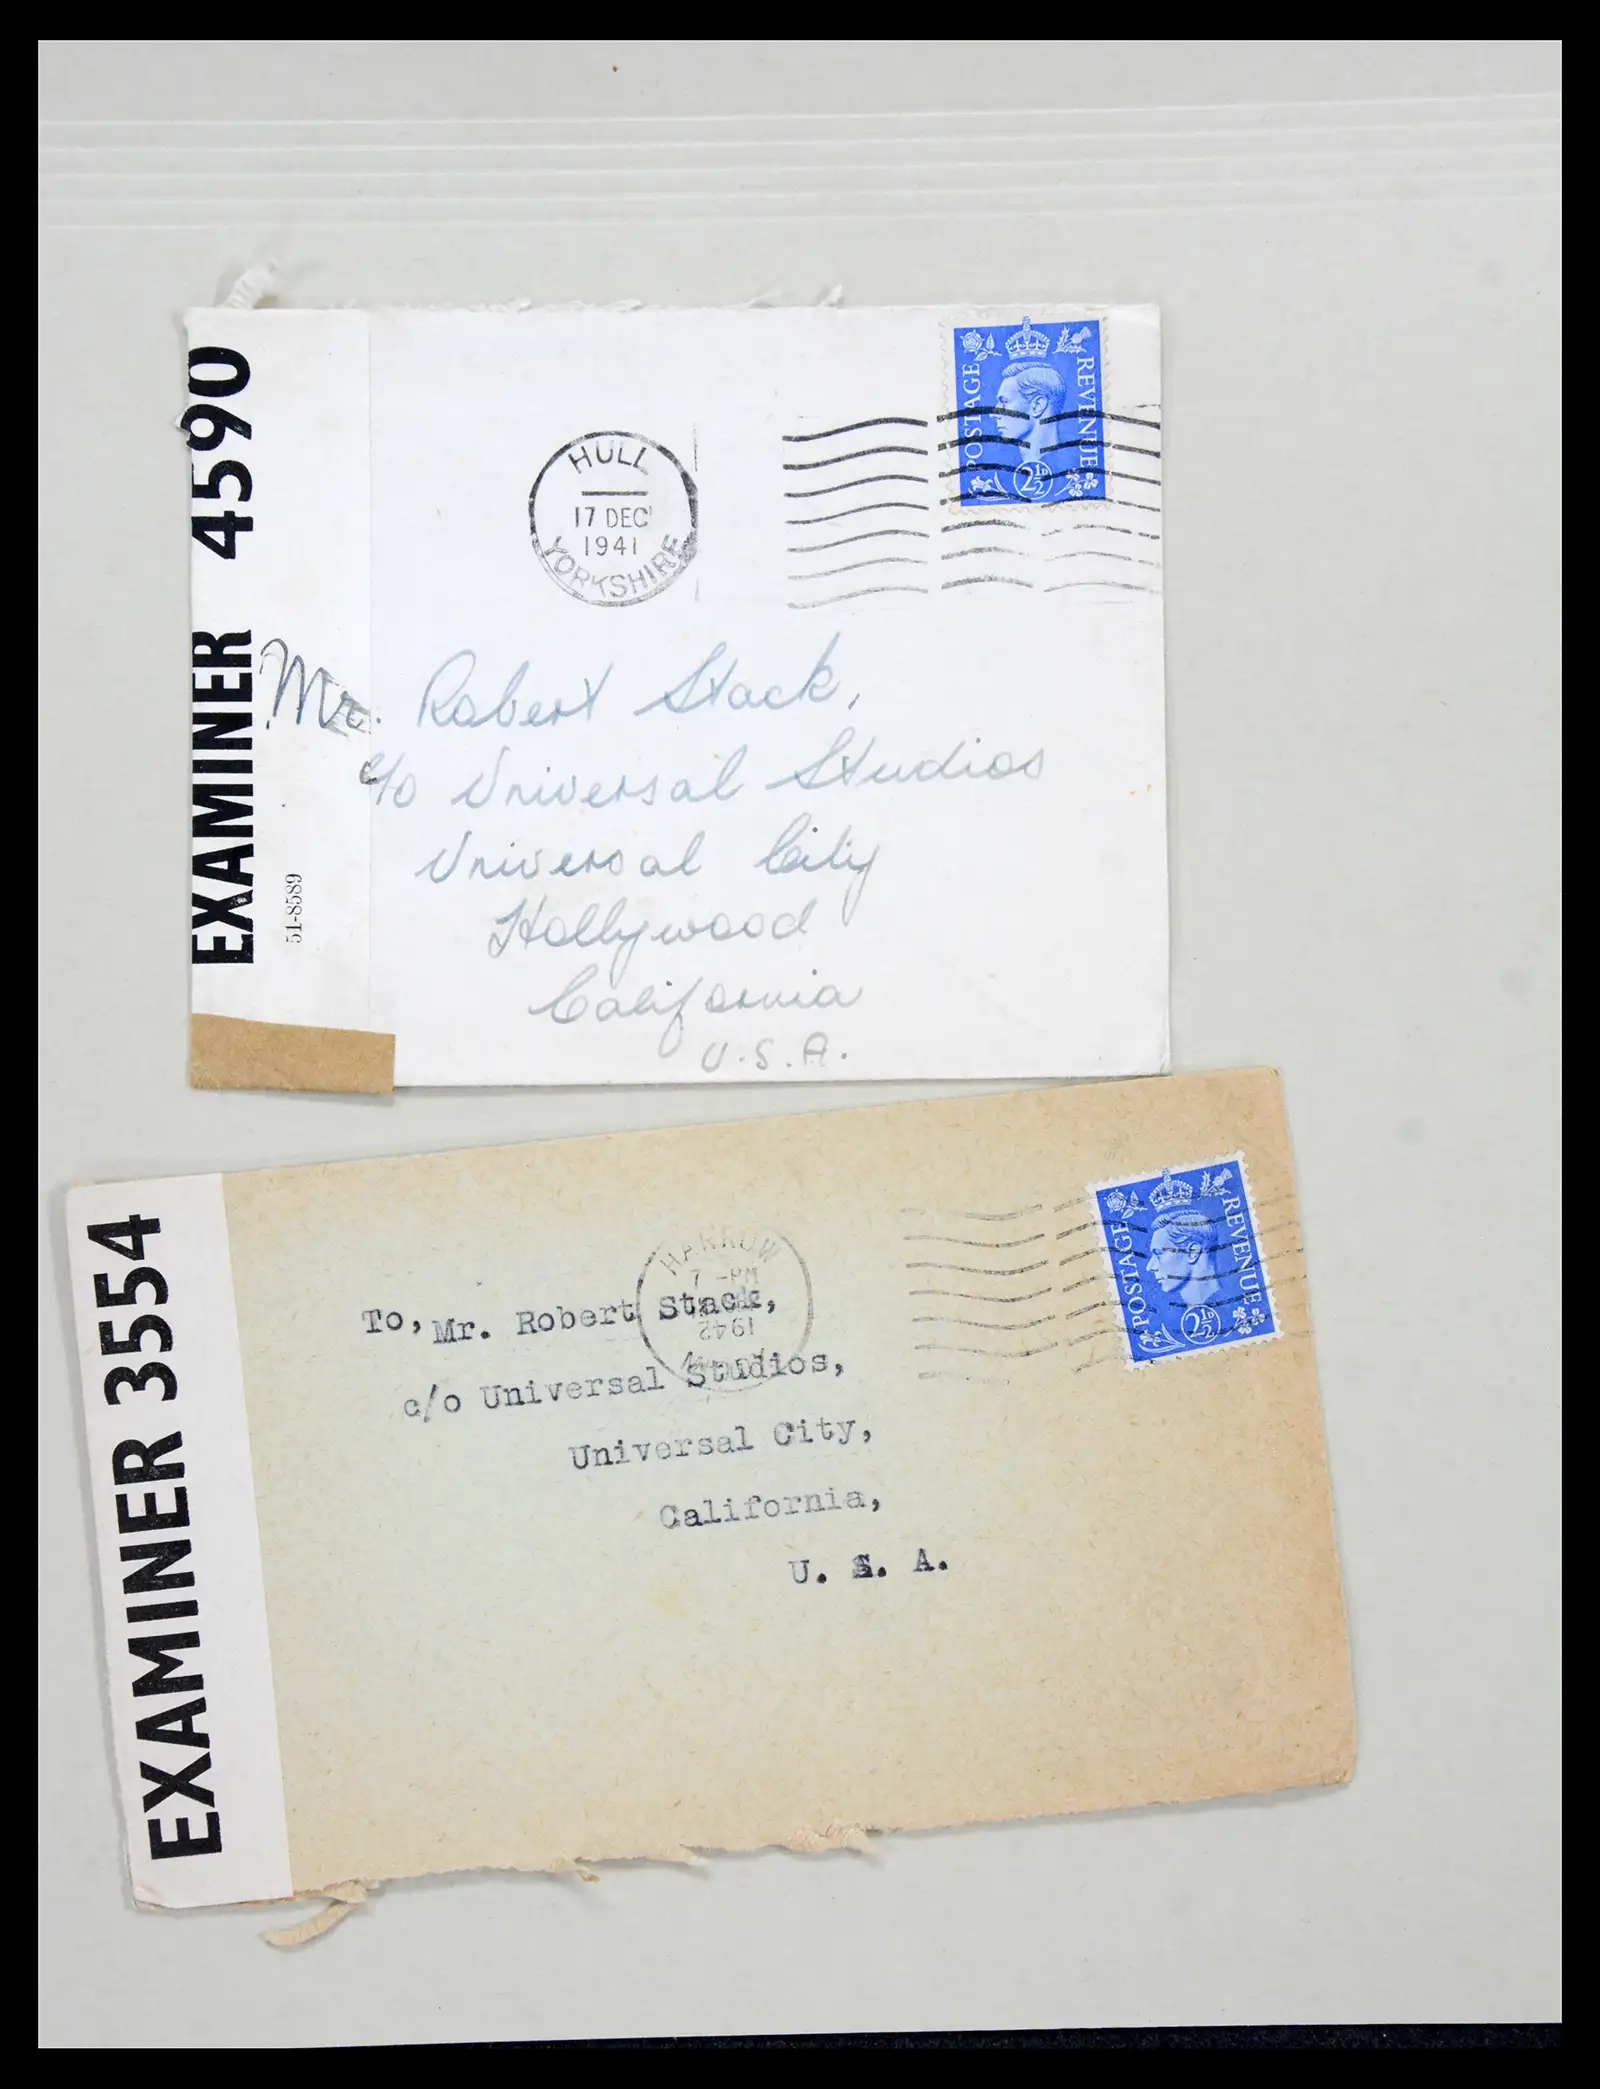 EXAMINER 4590
51-8589
HULL
17 DEC
1941
YORKSHIRE
POSTAGE
REVENUE
2½D
Mr. Robert Stack,
c/o Universal Studios
Universal City
Hollywood
California
U.S.A.
EXAMINER 3554
HARROW
7 -PM
1942
POSTAGE
REVENUE
2½D
To, Mr. Robert Stack,
c/o Universal Studios,
Universal City,
California,
U. S. A.